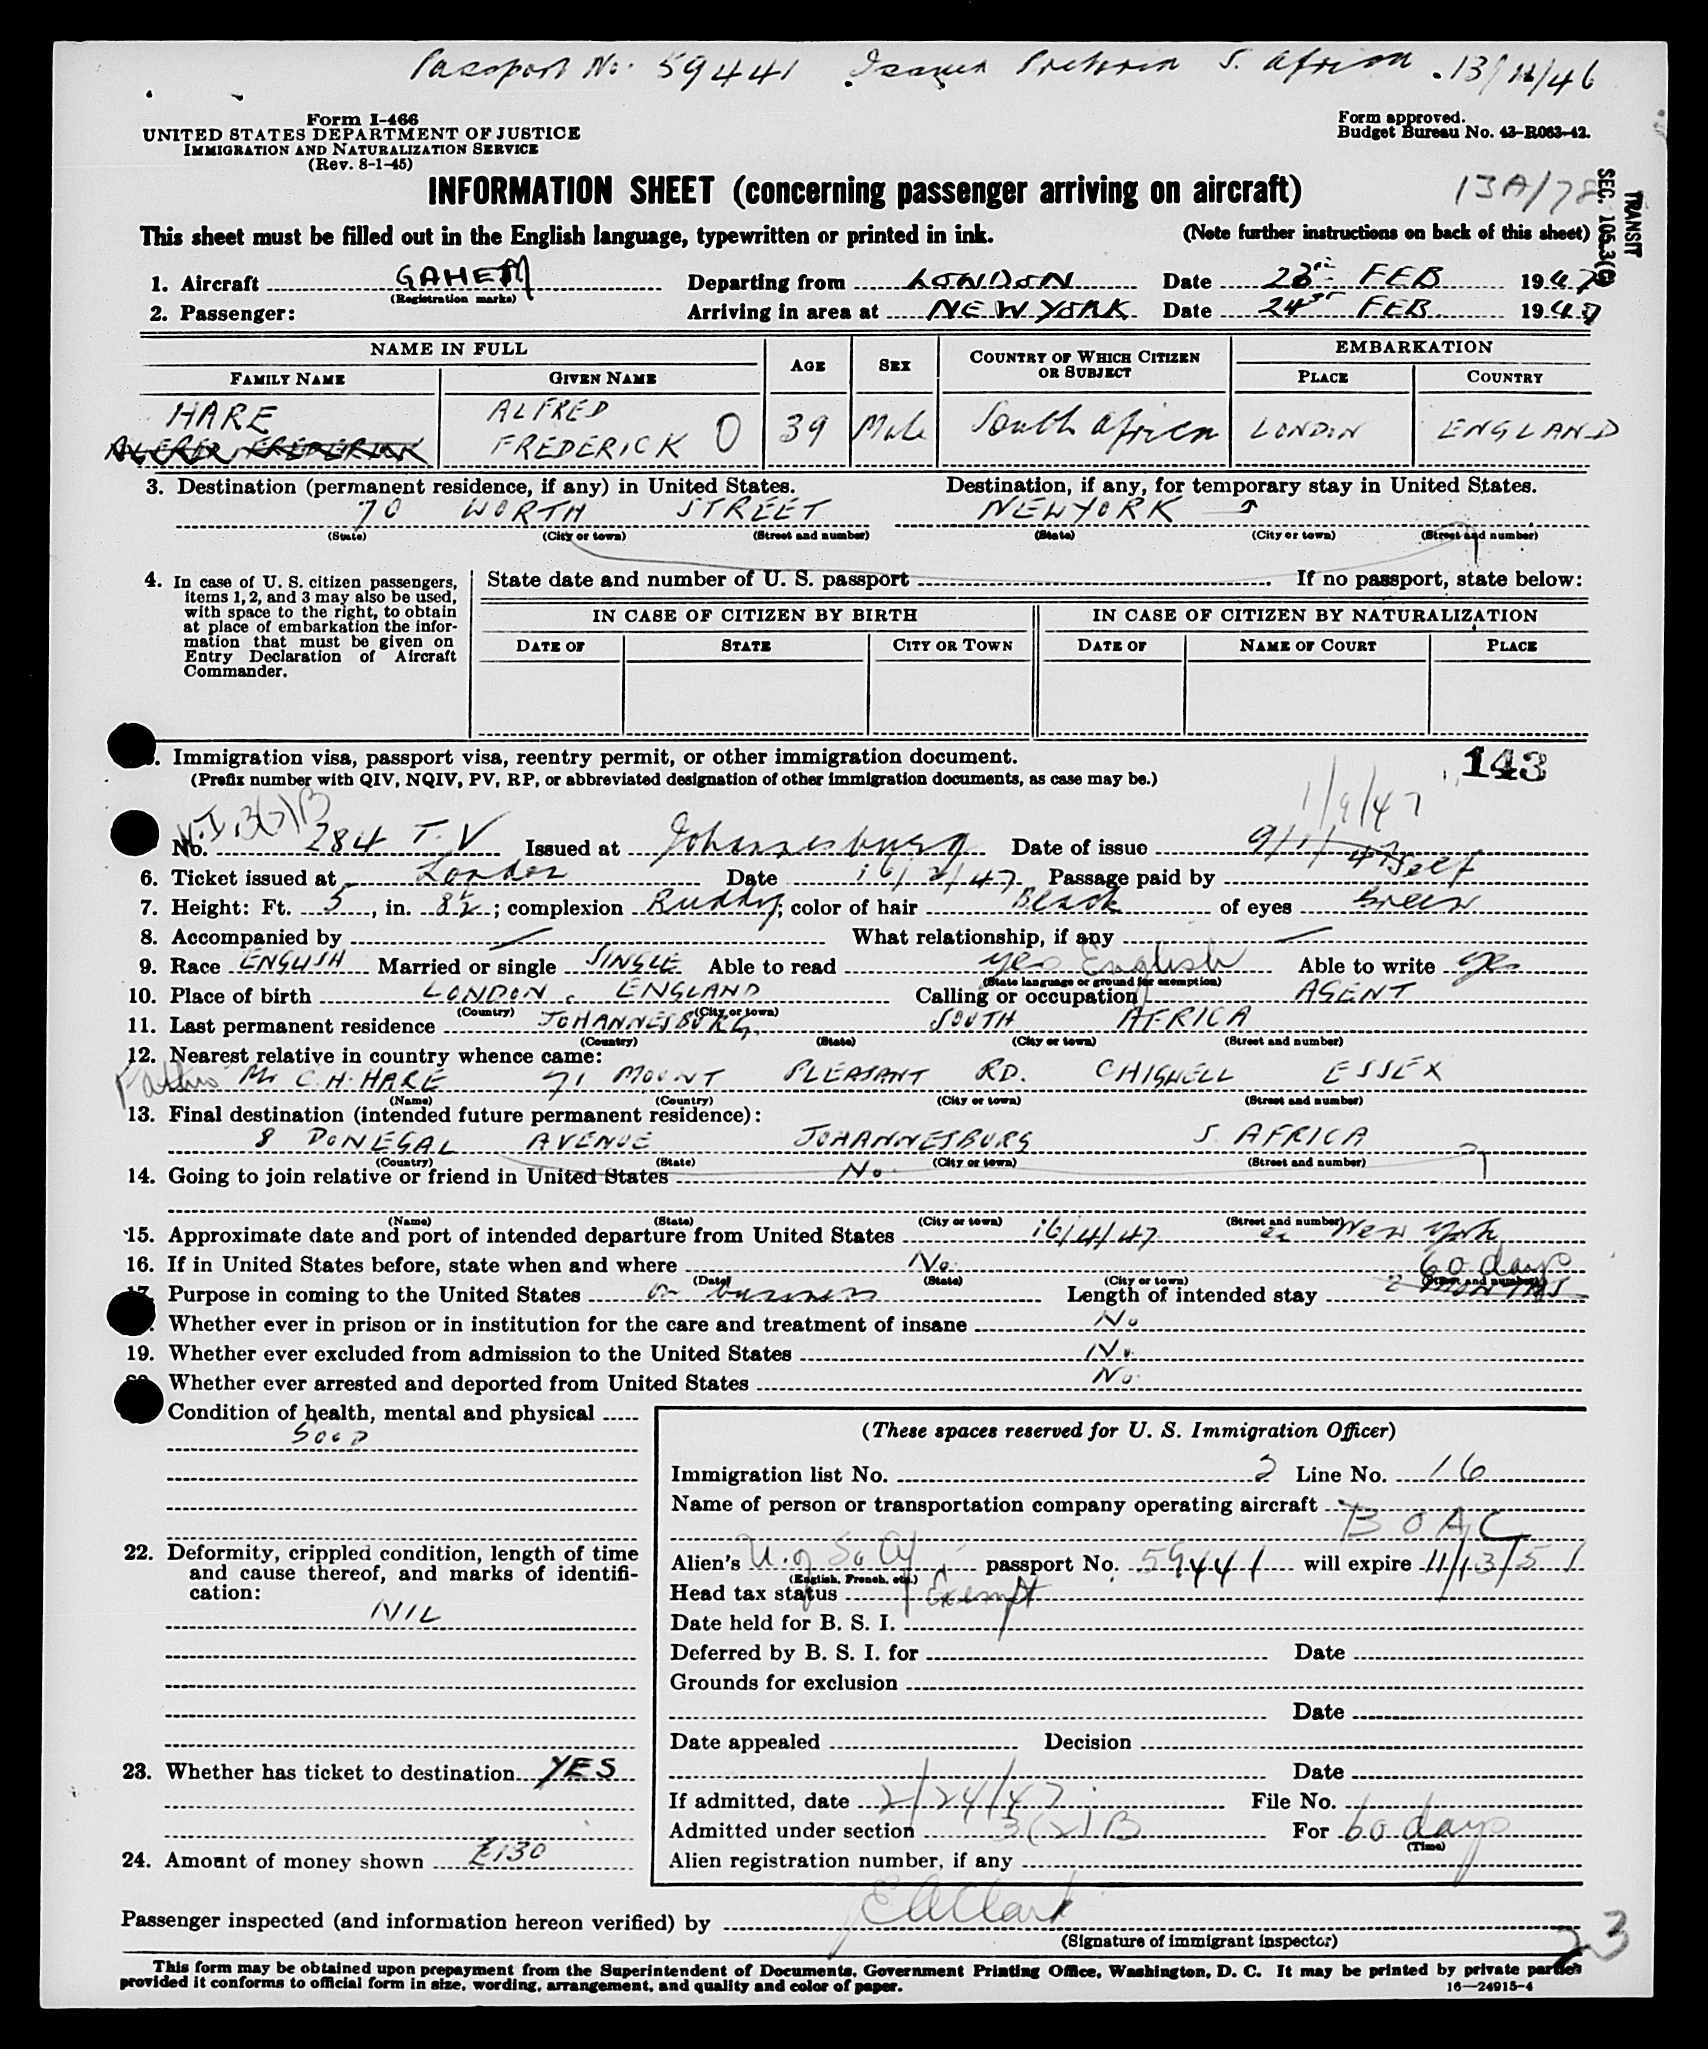 Passport No. 59441 Issued Pretoria S. Africa . 13/11/46
Form I-466
UNITED STATES DEPARTMENT OF JUSTICE
IMMIGRATION AND NATURALIZATION SERVICE
(Rev. 8-1-45)
Form approved.
Budget Bureau No. 43-R063-42.
INFORMATION SHEET (concerning passenger arriving on aircraft)
13A/78
TRANSIT
SEC. 105.3(
This sheet must be filled out in the English language, typewritten or printed in ink.
(Note further instructions on back of this sheet)
1. Aircraft GAHEM Departing from LONDON Date 23 FEB 1947
(Registration marks)
2. Passenger: Arriving in area at NEW YORK Date 24 FEB 1947
NAME IN FULL AGE SEX COUNTRY OF WHICH CITIZEN OR SUBJECT EMBARKATION
FAMILY NAME GIVEN NAME PLACE COUNTRY
HARE ALFRED
ALFRED FREDERICK FREDERICK O 39 Male South African LONDON ENGLAND
3. Destination (permanent residence, if any) in United States. Destination, if any, for temporary stay in United States.
70 WORTH STREET NEW YORK
(State) (City or town) (Street and number) (State) (City or town) (Street and number)
4. In case of U. S. citizen passengers, items 1, 2, and 3 may also be used, with space to the right, to obtain at place of embarkation the information that must be given on Entry Declaration of Aircraft Commander.
State date and number of U. S. passport If no passport, state below:
IN CASE OF CITIZEN BY BIRTH IN CASE OF CITIZEN BY NATURALIZATION
DATE OF STATE CITY OR TOWN DATE OF NAME OF COURT PLACE
. Immigration visa, passport visa, reentry permit, or other immigration document. 143
(Prefix number with QIV, NQIV, PV, RP, or abbreviated designation of other immigration documents, as case may be.)
1/9/47
No. 284 T.V Issued at Johannesburg Date of issue 9/1/47
6. Ticket issued at London Date 16/2/47 Passage paid by Self
7. Height: Ft. 5, in. 8½; complexion Ruddy; color of hair Black of eyes Green
8. Accompanied by — What relationship, if any —
9. Race ENGLISH Married or single SINGLE Able to read yes English Able to write yes
(State language or ground for exemption)
10. Place of birth LONDON, ENGLAND Calling or occupation AGENT
(Country) (City or town)
11. Last permanent residence JOHANNESBURG. SOUTH AFRICA
(Country) (State) (City or town) (Street and number)
12. Nearest relative in country whence came:
Father Mr C.H. HARE 71 MOUNT PLEASANT RD. CHIGWELL ESSEX
(Name) (Country) (City or town) (Street and number)
13. Final destination (intended future permanent residence):
8 DONEGAL AVENUE JOHANNESBURG S. AFRICA
(Country) (State) (City or town) (Street and number)
14. Going to join relative or friend in United States No.
(Name) (State) (City or town) (Street and number)
15. Approximate date and port of intended departure from United States 16/4/47 New York
16. If in United States before, state when and where No. 60 days
(Date) (State) (City or town) (Street and number)
17. Purpose in coming to the United States On business Length of intended stay 2 MONTHS
. Whether ever in prison or in institution for the care and treatment of insane No
19. Whether ever excluded from admission to the United States No.
Whether ever arrested and deported from United States No.
Condition of health, mental and physical
GOOD
22. Deformity, crippled condition, length of time and cause thereof, and marks of identification:
NIL
23. Whether has ticket to destination YES
24. Amount of money shown £130
(These spaces reserved for U. S. Immigration Officer)
Immigration list No. 2 Line No. 16
Name of person or transportation company operating aircraft
BOAC
Alien's U. of So. Af. passport No. 59441 will expire 11/13/51
(English, French, etc.)
Head tax status Exempt
Date held for B. S. I.
Deferred by B. S. I. for Date
Grounds for exclusion
Date
Date appealed Decision
Date
If admitted, date 2/24/47 File No.
Admitted under section 3(2)B For 60 days
(Time)
Alien registration number, if any
Passenger inspected (and information hereon verified) by EAClark
(Signature of immigrant inspector)
23
This form may be obtained upon prepayment from the Superintendent of Documents, Government Printing Office, Washington, D. C. It may be printed by private parties
provided it conforms to official form in size, wording, arrangement, and quality and color of paper.
16—24915-4